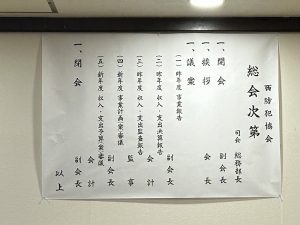 西防犯協会
総会次第
司会 総務部長
一、開会 副会長
一、挨拶 会長
一、議案
(一)昨年度 事業報告 副会長
(二)昨年度 収入・支出決算報告 会計
(三)昨年度 収入・支出監査報告 監事
(四)新年度 事業計画(案)審議 副会長
(五)新年度 収入・支出予算(案)審議 会計
一、閉会 副会長
以上